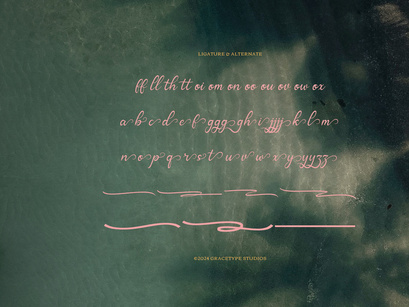 LIGATURE & ALTERNATE
ff ll th tt oi om on oo ou ov ow ox
a b c d e f g g g g h i j j j j k l m
n o p q r s t u v w x y y y y z z
©2018 GRACETYPE STUDIOS